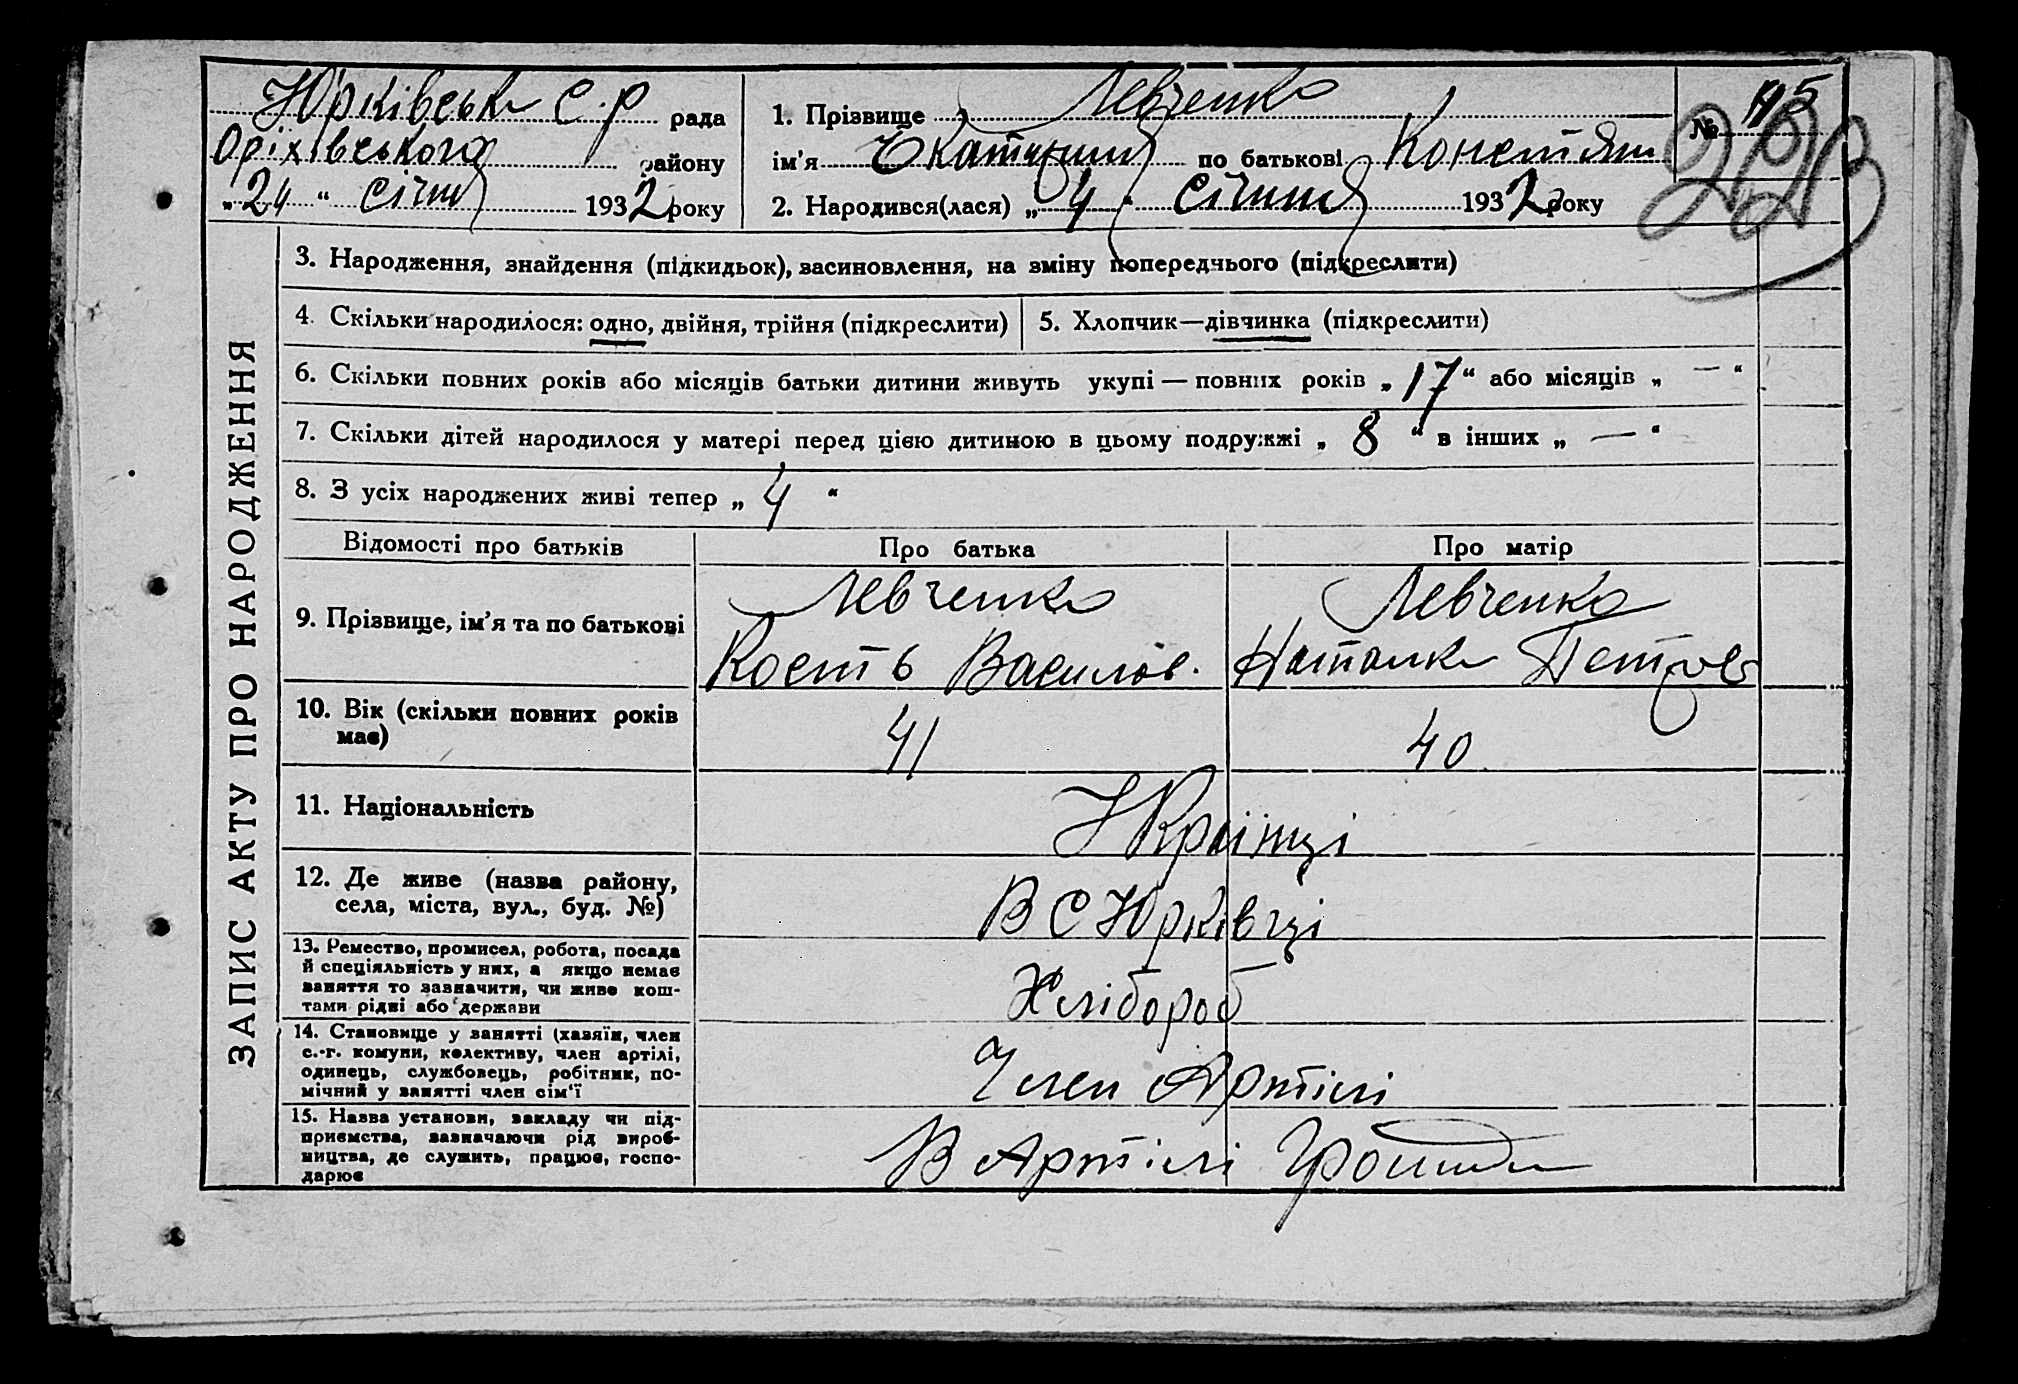 Юрківська С.Р. рада
Оріхівського району
„24“ січня 1932 року
1. Прізвище Левченко
ім'я Екатерина по батькові Констян
2. Народився(лася) „4“ січня 1932 року
№ 15
ЗАПИС АКТУ ПРО НАРОДЖЕННЯ
3. Народження, знайдення (підкидьок), засиновлення, на зміну попереднього (підкреслити)
4. Скільки народилося: одно, двійня, трійня (підкреслити)
5. Хлопчик—дівчинка (підкреслити)
6. Скільки повних років або місяців батьки дитини живуть укупі — повних років „17“ або місяців „—“
7. Скільки дітей народилося у матері перед цією дитиною в цьому подружжі „8“ в інших „—“
8. З усіх народжених живі тепер „4“
Відомості про батьків Про батька Про матір
9. Прізвище, ім'я та по батькові
Левченко
Кость Василів.
Левченко
Наталка Петров
10. Вік (скільки повних років
має)
41
40
11. Національність
Українці
12. Де живе (назва району,
села, міста, вул., буд. №)
В С Юрківці
13. Ремество, промисел, робота, посада
й спеціяльність у них, а якщо немає
заняття то зазначити, чи живе кош-
тами рідні або держави
Хлібороб
14. Становище у занятті (хазяїн, член
с.-г. комуни, колективу, член артілі,
одинець, службовець, робітник, по-
мічний у занятті член сім'ї
Член Артілі
15. Назва установи, закладу чи під-
приємства, зазначаючи рід вироб-
ництва, де служить, працює, госпо-
дарює
В Артілі